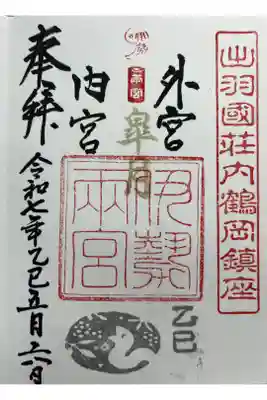 出羽國荘内鶴岡鎮座
外宮
皐月
内宮
伊勢両宮
乙巳
奉拜
令和七年乙巳五月六日